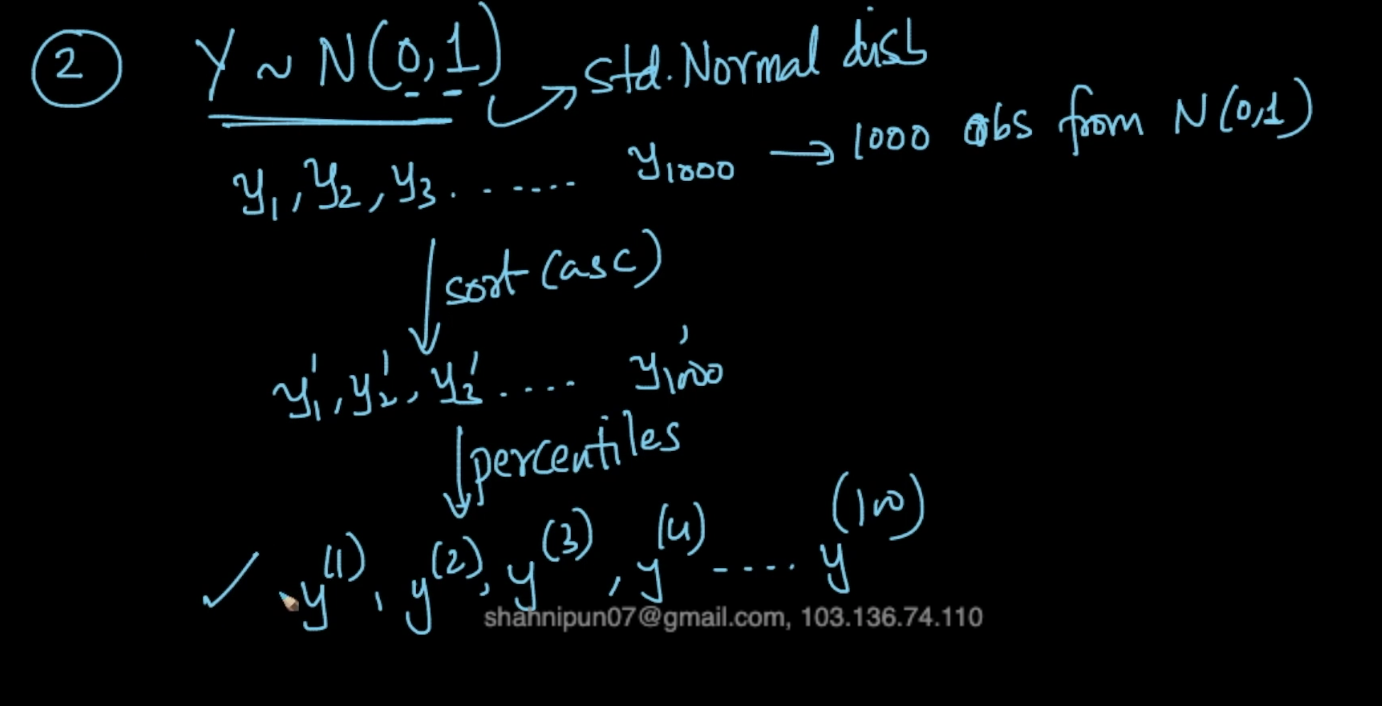 2 Y ~ N(0,1) → Std. Normal dist
y₁, y₂, y₃ . . . . . . . y₁₀₀₀ → 1000 obs from N(0,1)
↓ sort (asc)
y₁', y₂', y₃' . . . . y₁₀₀₀'
↓ percentiles
✓ y⁽¹⁾, y⁽²⁾, y⁽³⁾, y⁽⁴⁾ - . . . . y⁽¹⁰⁰⁾
shahnipun07@gmail.com, 103.136.74.110